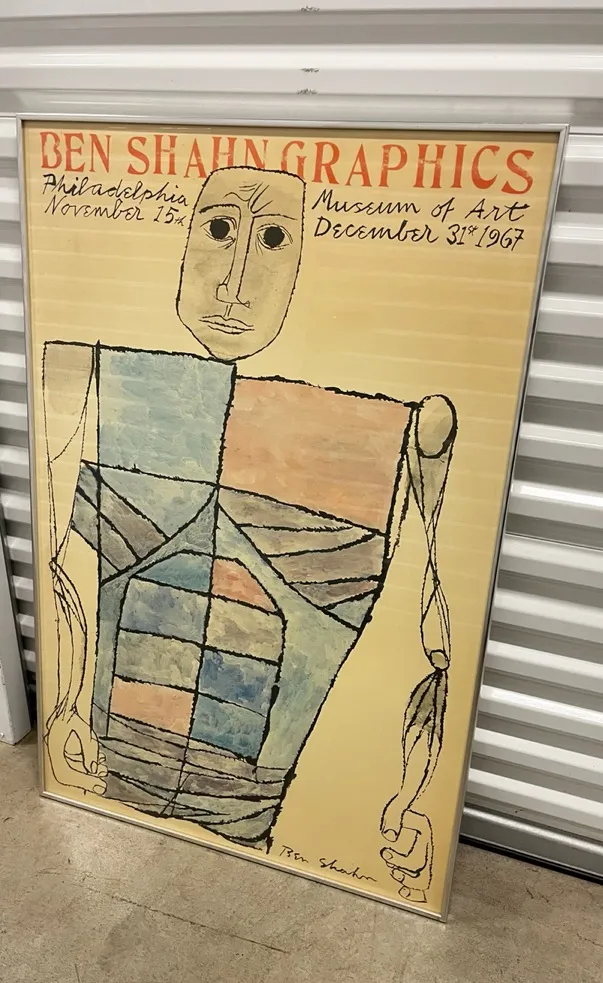 BEN SHAHN GRAPHICS
Philadelphia Museum of Art
November 15th December 31st 1967
Ben Shahn